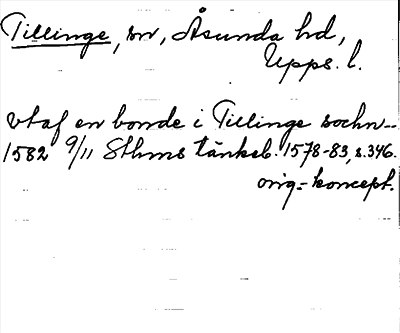 Tillinge, sn, Åsunda hd,
Upps. l.
vtaf en bonde i Tillinge sochn--
1582 9/11 Sthms tänkeb. 1578-83, s. 346.
orig.-koncept.